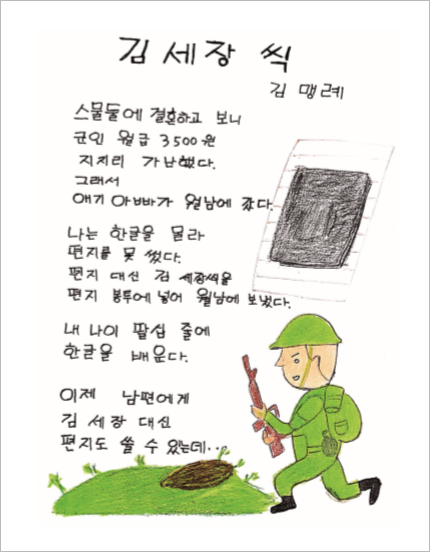 김 세 장 씩
김 맹 례
스물둘에 결혼하고 보니
군인 월급 3500원
지지리 가난했다.
그래서
애기 아빠가 월남에 갔다.
나는 한글을 몰라
편지를 못 썼다.
편지 대신 김 세장씩을
편지 봉투에 넣어 월남에 보냈다.
내 나이 팔십 줄에
한글을 배운다.
이제 남편에게
김 세장 대신
편지도 쓸 수 있는데...